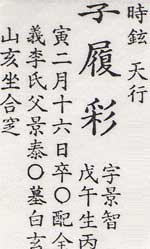 時鉉 天行
子履彩
字景智
戊午生丙
寅二月十六日卒〇配全
義李氏父景泰〇墓白玄
山亥坐合窆